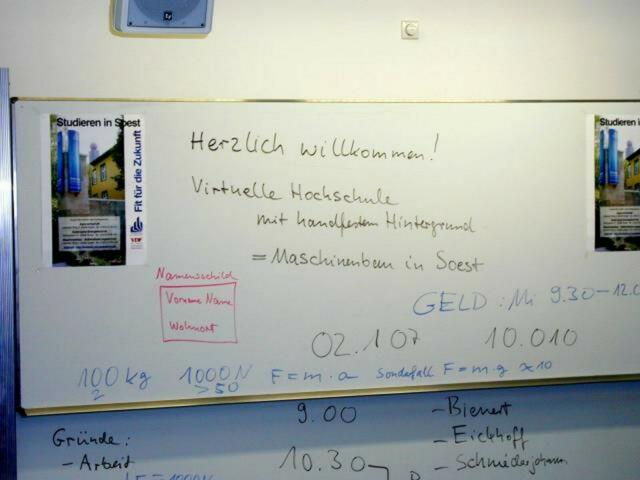 Studieren in Soest
Fit für die Zukunft
Studieren in
Herzlich willkommen!
Virtuelle Hochschule
mit handfestem Hintergrund
= Maschinenbau in Soest
Namensschild
Vorname Name
Wohnort
GELD : Mi 9.30-12.0
02.107
10.010
100 kg
2
1000N
>50
F = m · a Sonderfall F = m · g ≈10
9.00
- Bienert
Gründe:
- Eickhoff
- Arbeit
10.30